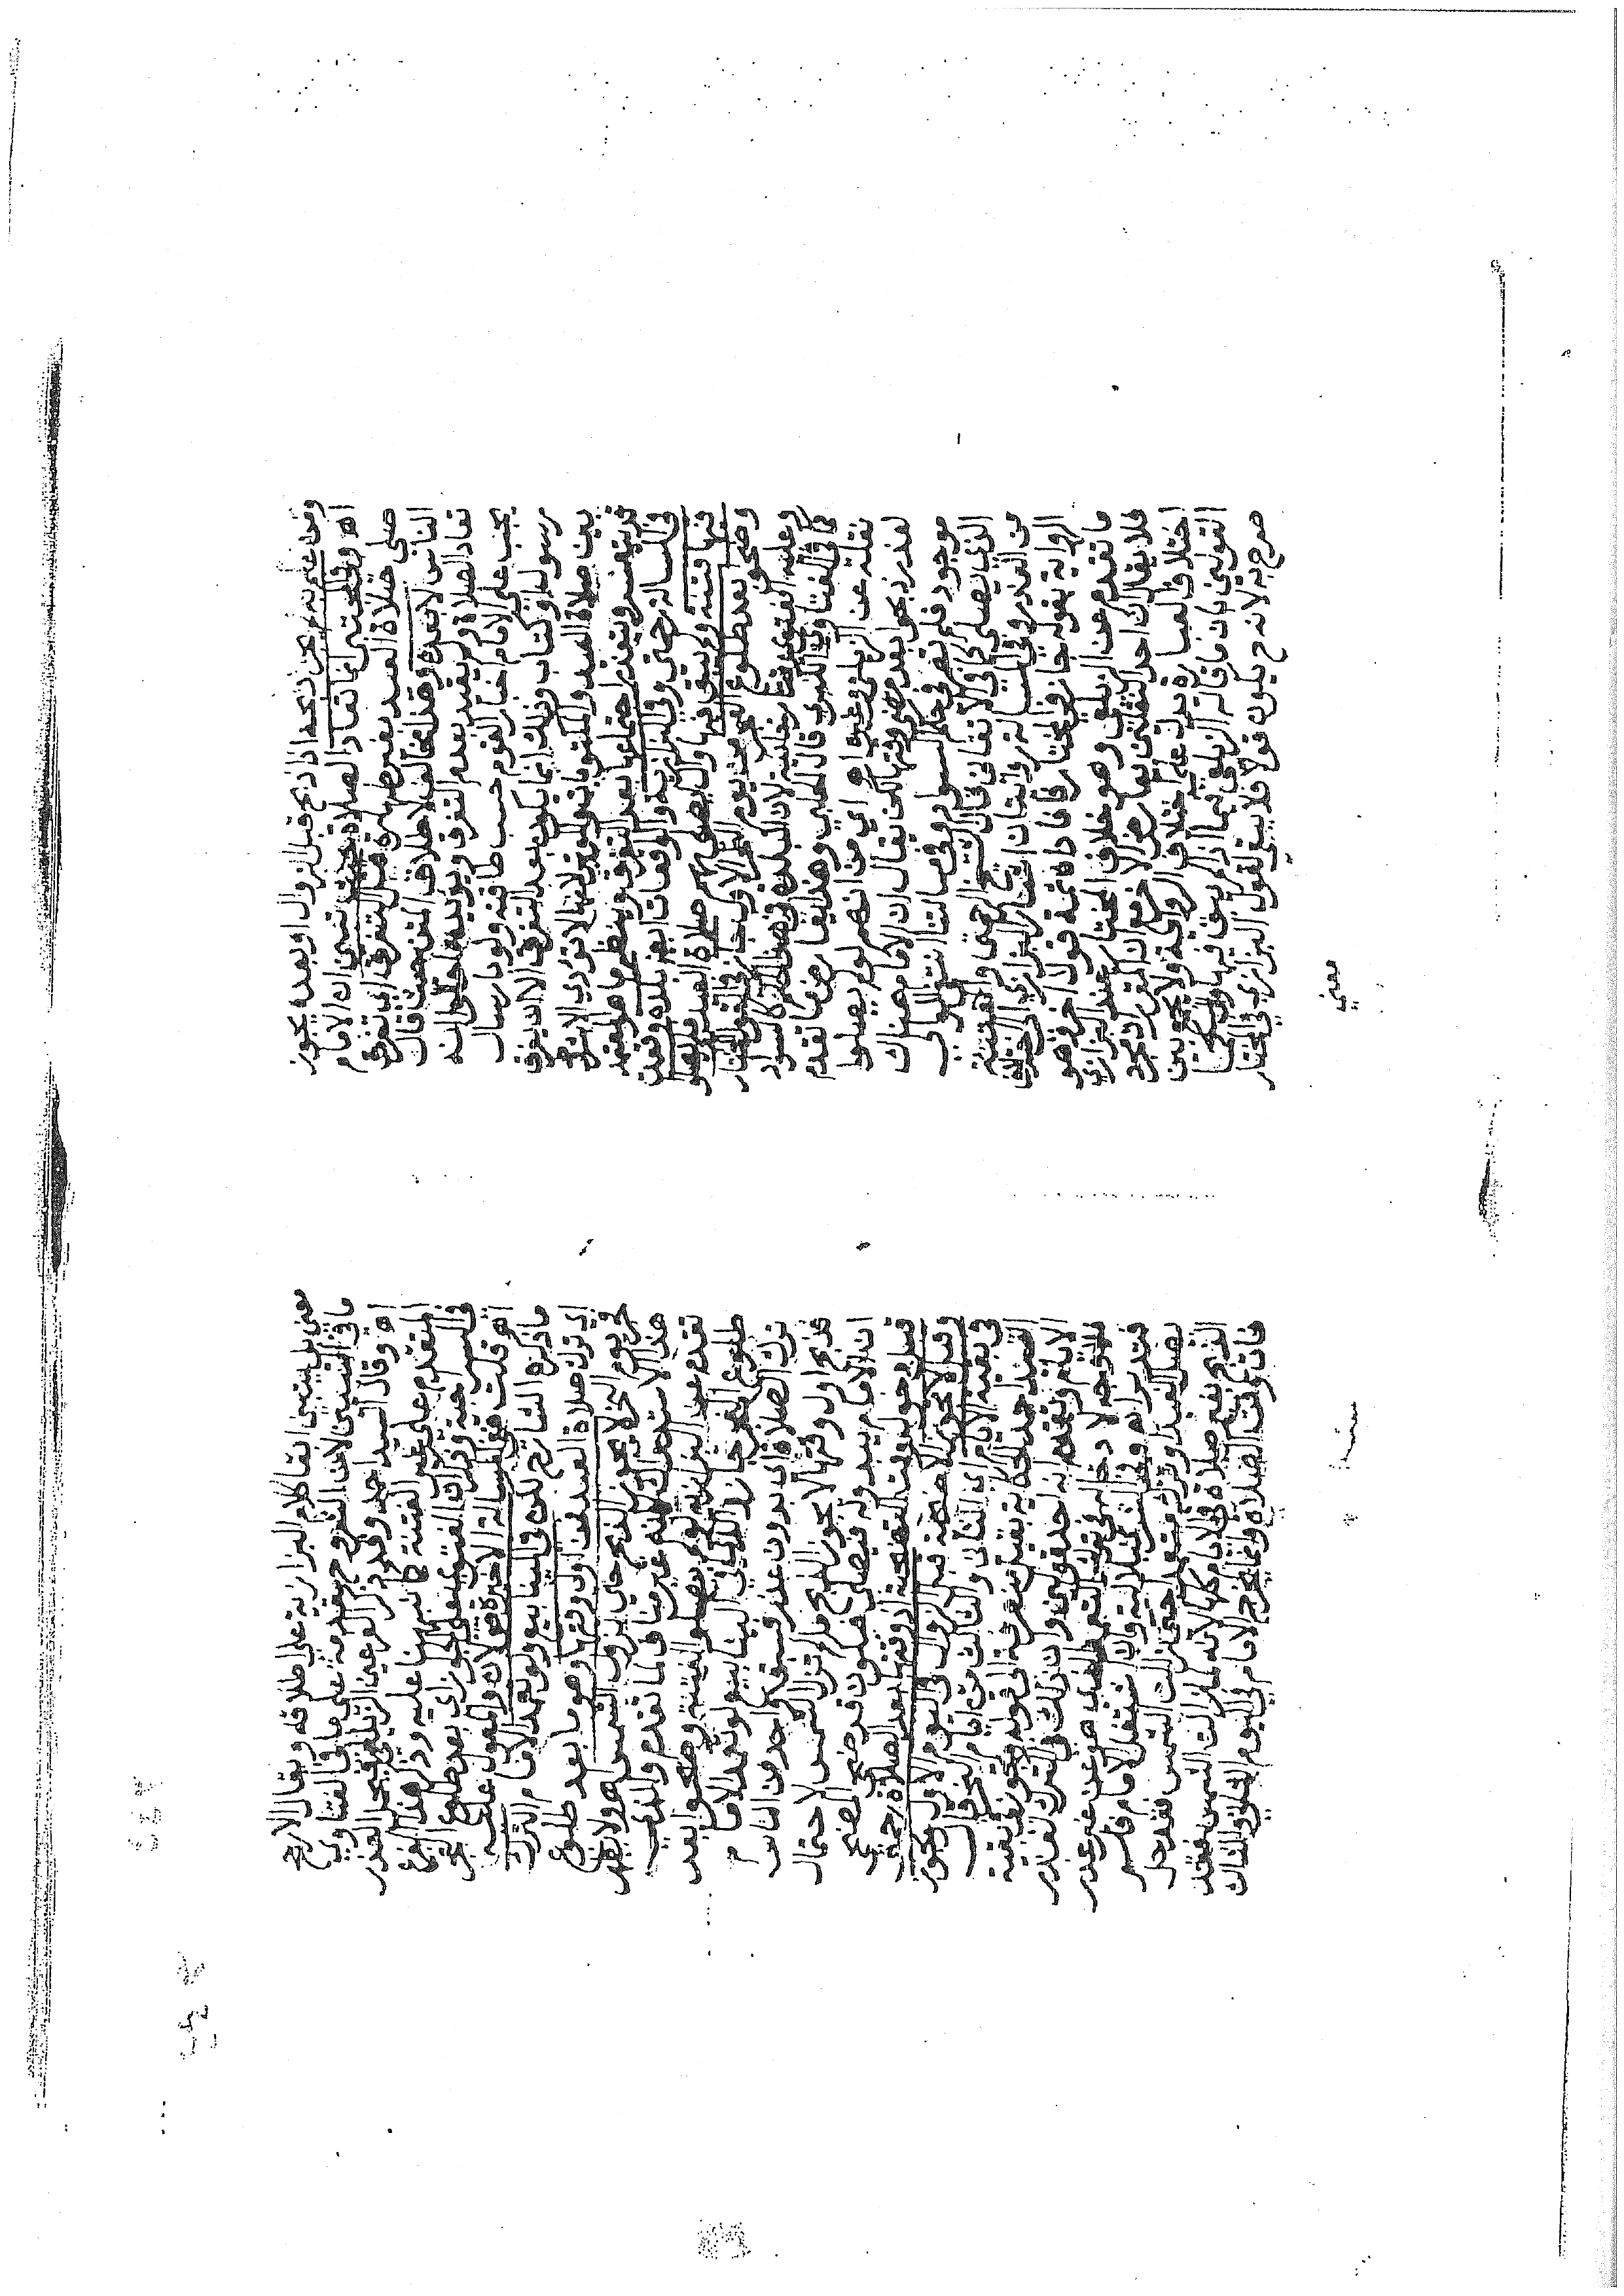 ومن علم به يجزيه ذبحه اذا ذبح قبل الزوال او بعده يجوز
اه وفي المجتبى انما تعاد الصلاة تبين ان الامام
صلى صلاة العيد بغير طهارة قبل التفرق اي تفرق
الناس لا بعده وهذا مخالف لاطلاق المتن حيث قال
تعاد الصلاة ولم يقيد بعدم التفرق ويؤيده انه
يجب على الامام اخبار القوم حسب طاقته ولو بارسال
رسول او كتاب وذلك انما يكون بعد التفرق الا ان يفرق
بين صلاة العيد والمكتوبات لانها لا تؤدي الا بشرط
قد يتعسر ويتعذر اجتماعها بعد التفرق وينظر ما هو المعتمد
في المسالة رحمتي وفي البزازية والواقعات بلدة وقعت
فيها فتنة ولم يبق فيها وال يصلي بهم صلاة العيد
وضحوا بعد طلوع الفجر من يوم النحر الاول جاز المختار
وعليه الفتوى لان البلدة في هذا الحكم كالسواد
كما في الفتاوى الكبرى قال الحلبي وهذا يعارض ما تقدم
نقله عن الزيلعي وغيره اه اي من انهم لو لم يصلوا
لعذر ذبحوا بعد مضي وقتها لكن يقال ان الامام هناك
موجود فلم تصر في حكم السواد وفي مسالتنا انتفى الوالي
الذي يصلي قال الشيخ الرحمتي والفتنة
من العذر وفي المسالة روايتان اختار البزازي
الرواية بقوله جاز في المختار فافاد ان ثمة قول اخر وهو
ما تقدم عن الزيلعي وهو خلاف المختار عند البزازي
فلا يقال ان احد النقلين يعارض الاخر مع ان المقرر ان مجرد
اختلاف العبارة يدل على اختلاف الرواية ولا يجمع بين
القولين بان ما قاله الزيلعي فيما اذا لم يبق فيها وال كما
صرح به لانه ح يكون قولا فلا يبقى لقول البزازي في المختار
معنى
معنى بل يبقى كلام البزازية على اطلاقه ويقال الارجح
ما في التبيين لان الشروح مقدمة على ما في الفتاوي
اه وقال السيد احمد وقد ذكر الفرعين الزيلعي فيحمل العذر
المتقدم على غير الفتنة كما نبهنا عليه وذكر هذا الفرع
في السراجية وزاد الفتوى على الجواز اي بعد طلوع الفجر
اه قلت ففي المسالة الاخيرة قولان والمعول عليه
ما ذكره الشارح لكن في الينابيع ولو تعمد الامام الترك
اي ترك صلاة العيد في اول وقتها وهو ما بعد طلوع
فجر يوم النحر لا يجوز الذبح حتى تزول الشمس اه ولا يظهر
هذا الاستدراك لانه غير مناف لما تقدم والذي
تقدم عن البزازية لو لم يصلوا لفتنة وضحوا بعد
طلوع الفجر جاز والذي في الينابيع لو تعمد الامام
ترك الصلاة اي بدون عذر فسبق واحد من الناس
فذبح اول وقتها لا يجوز الذبح ما لم تزل الشمس لاحتمال
ان الامام يبدو له فيصلي فيكون قد ضحى المضحي
قبل دخول وقت التضحية اذ وقتها بعد الصلاة رحمتي
وقيل لا تجوز الاضحية قبل الزوال في اليوم الاول وتجوز
في بقية الايام اي الثاني والثالث من ايام النحر قال
السيد احمد الحكاية بقيل منصرفة الى قوله وتجوز في بقية
الايام وتقدم انه احد قولين وان ذلك في الترك لعذر
فلا وجه لادخاله في ترك التعمد اذ هو عن غير عذر
فتدبر اه وفي الشرنبلالية وان اشتغل الامام فلم
يصل العيد او ترك متعمدا حتى زالت الشمس فقد حل
الذبح بغير صلاة في الايام كلها لانه لما زالت الشمس فقد
فات وقت الصلاة وانما يخرج الامام في اليوم الثاني والثالث